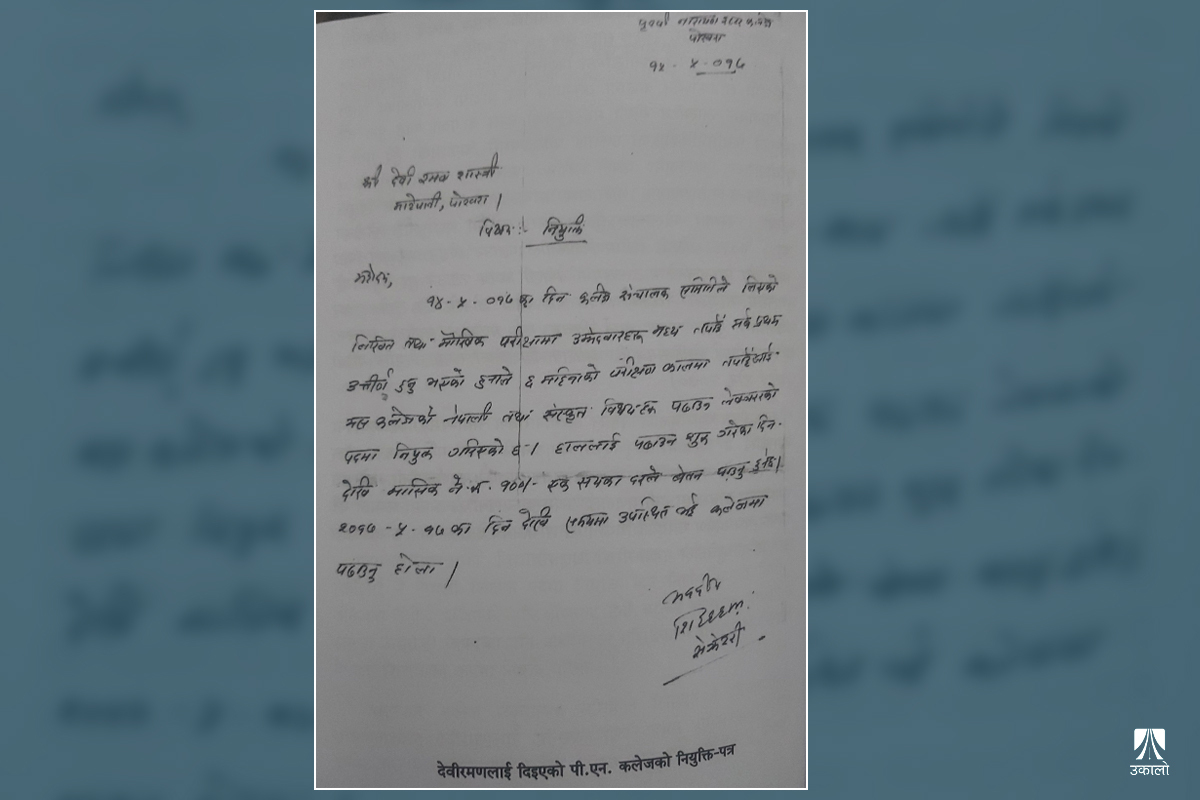 पृथ्वी नारायण
पोखरा
१५ - ५ - ०१७
श्री देवी रमण शास्त्री
पोखरा ।
विषय :- नियुक्ति
महोदय,
१४ - ५ - ०१७ का दिन कलेज संचालक समितिले लिएको
लिखित तथा मौखिक परीक्षामा उम्मेदवारहरू मध्य तपाईं सर्व प्रथम
उत्तीर्ण हुनु भएको हुनाले ६ महिनाको परीक्षण कालमा तपाईंलाई
यस कलेजको नेपाली तथा संस्कृत विषयहरू पढाउन लेक्चररको
पदमा नियुक्त गरिएको छ । हाललाई पढाउन शुरू गरेका दिन
देखि मासिक ने.रू. १००।- एक सयका दरले वेतन पाउनु हुनेछ।
२०१७ - ५ - १७ का दिन देखि उपस्थित भई कलेजमा
पढाउनु होला ।
भवदीय
सेक्रेटरी
देवीरमणलाई दिइएको पी.एन. कलेजको नियुक्ति-पत्र
उकालो